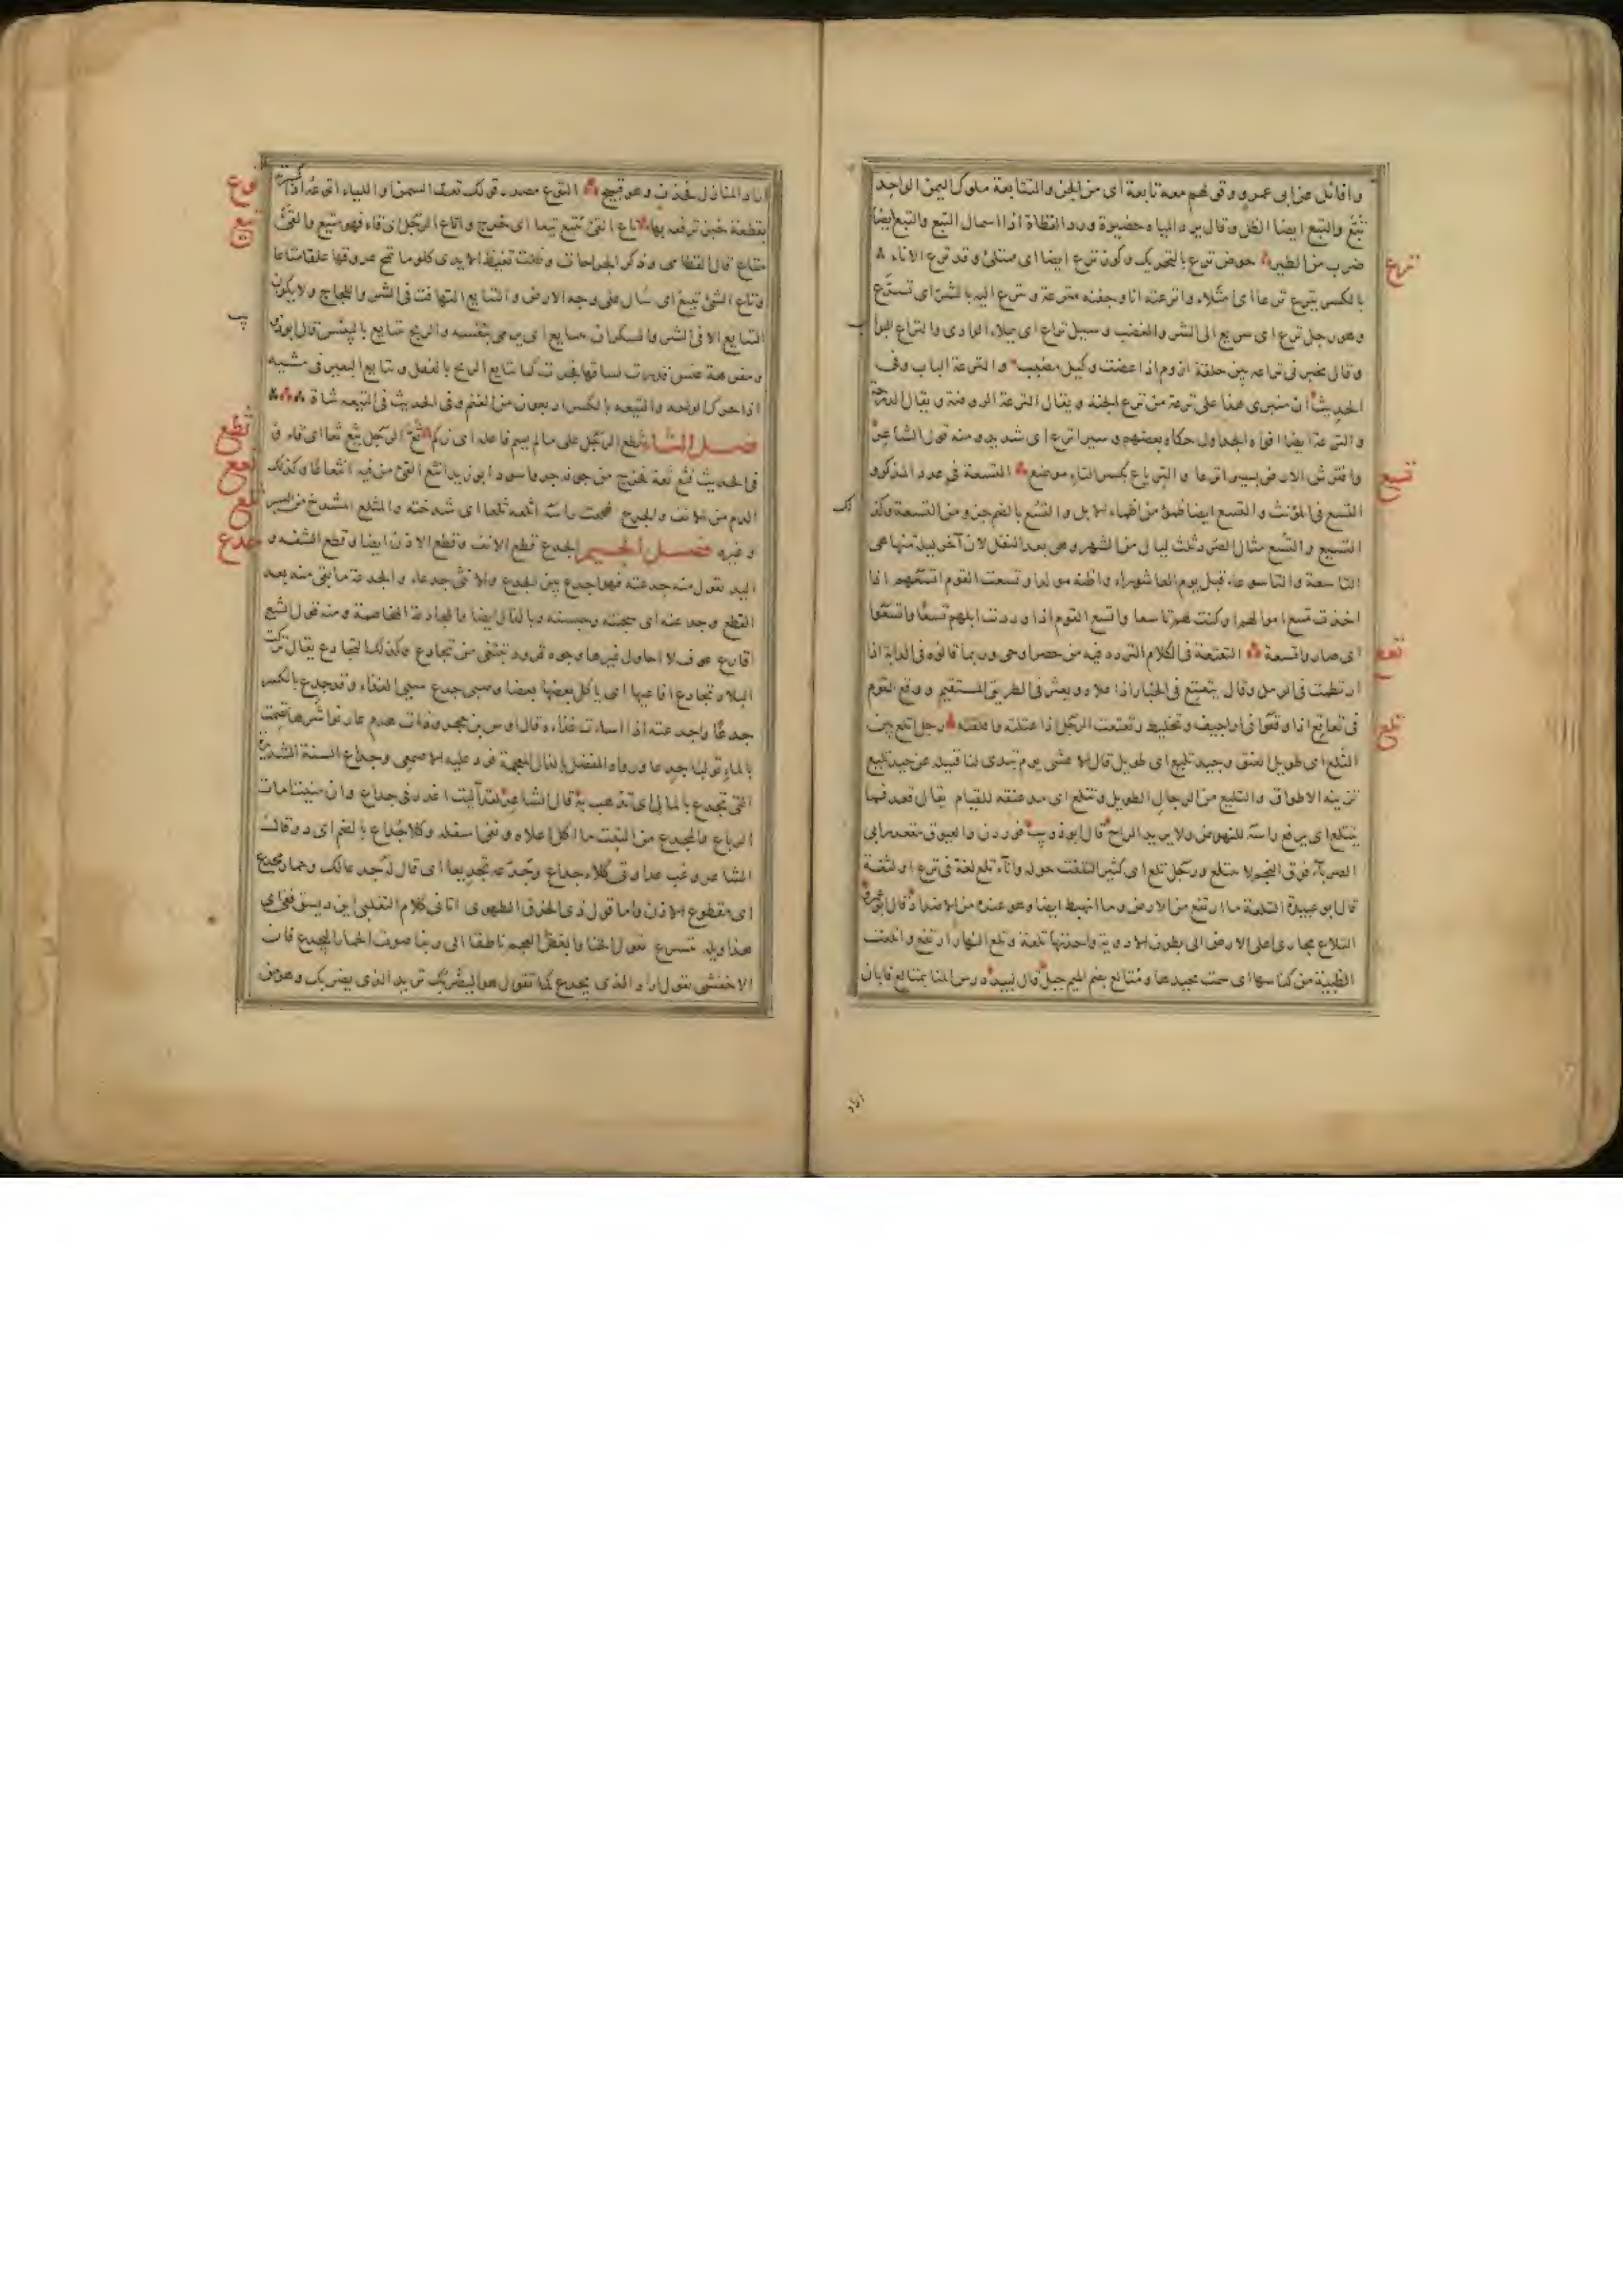 وافاتل عن ابى عمرو وقولهم معه تابعة اى من الجن والتبابعة ملوك اليمن الواحد
تُبَّع والتبع ايضا الظل وقال يرد المياه حضيرة ورد القطاة اذا اسمال التبع والتبع ايضا
ضرب من الطير حوض ترع بالتحريك وكوز ترع ايضا اى ممتلئ وقد ترع الاناء
بالكسر يترع ترعا اى امتلاء واترعته انا وجفنه مترعة وترع اليه بالشر اى تسرّع
وهو رجل ترع اى سريع الى الشر والغضب وسيل تراع اى يملاء الوادى والتراع البواب
وقال يخبرنى تراعه بين حلقة ازوم اذا عضت وكبل مضبب والترعة الباب وفى
الحديث ان منبرى هذا على ترعة من ترع الجنة ويقال الترعة الروضة ويقال الدرجة
والترعة ايضا افواه الجداول حكاه بعضهم وسير اترع اى شديد ومنه قول الشاعر
وافترش الارض بسير اترعا والترباع بكسر التاء موضع التسعة فى عدد المذكر
التسع فى المؤنث والتسع ايضا ظمؤ من اظماء الابل والتسع بالضم جزو من التسعة وكذا
التسيع والتسع مثال الصرد ثلث ليال من الشهر وهى بعد النفل لان آخر ليلة منها هى
التاسعة والتاسوعاء قبل يوم العاشوراء واظنه مولدا وتسعت القوم اتسعهم اذا
اخذت تسع اموالهم او كنت لهم تاسعا واتسع القوم اذا وردت ابلهم تسعا واتسعوا
اى صاروا تسعة التعتعة فى الكلام التردد فيه من حصر او عى وربما قالوه فى الدابة اذا
ارتطمت فى الرمل وقال يتعتع فى الخبار اذا علاه ويعثر فى الطريق المستقيم ووقع القوم
فى تعاتع اذا وقعوا فى اراجيف وتخليط وتعتعت الرجل اذا عتلته واقلقته رجل اتلع بين
التلع اى طويل العنق وجيد تليع اى طويل قال الاعشى يوم تبدى لنا قتيلة عن جيد تليع
تزينه الاطواق والتليع من الرجال الطويل وتتلع اى مد عنقه للقيام يقال قعد فما
يتتلع اى يرفع راسه للنهوض ولا يريد البراح قال ابو ذويب فوردن والعيوق مقعد رابى
الضرباء فوق النجم لا يتتلع ورجل تلع اى كثير التلفت حوله واناء تلع لغة فى ترع او لثغة
قال ابو عبيدة التلعة ما ارتفع من الارض وما انهبط ايضا وهو عنده من الاضداد قال ابو عمرو
التلاع مجارى اعلى الارض الى بطون الاودية واحدتها تلعة وتلع النهار ارتفع واتلعت
الظبية من كناسها اى سمت بجيدها ومتالع بضم الميم جبل قال لبيد درس المنا بمتالع فابان
اراد
اراد المنازل فحذف وهو قبيح التوع مصدر قولك تعت السمن واللباء اتوعه اذا كسرته
بقطعة خبز ترفعه بها تاع القئ يتيع تيعا اى خرج واتاع الرجل اى قاء فهو متيع والقئ
متاع قال القطامى وذكر الجراحات وظلت تعبط الايدى كلوما تمج عروقها علقا متاعا
وتاع الشئ تيعا اى سال على وجه الارض والتتايع التهافت فى الشر واللجاج ولا يكون
التتايع الا فى الشر والسكران يتتايع اى يرمى بنفسه والريح تتايع باليبيس قال ابو ذويب
ومفرهة عنس قدرت لساقها فخرت كما تتايع الريح بالقفل وتتايع البعير فى مشيه
اذا حرك الواحه والتيعه بالكسر اربعون من الغنم وفى الحديث فى التيعه شاة
فصل الثاء ثطع الرجل على ما لم يسم فاعله اى زكم ثع الرجل يثع ثعا اى قاء و
فى الحديث فثع ثعة فخرج من جوفه جرو اسود ابو زيد انثع القئ من فيه انثعاعا وكذلك
الدم من الانف والجرح ثلعت راسه اثلعه ثلعا اى شدخته والمثلع المشدخ من البسر
وغيره فصل الجيم الجدع قطع الانف وقطع الاذن ايضا وقطع الشفه و
اليد تقول منه جدعته فهو اجدع بين الجدع والانثى جدعاء والجدعة ما بقى منه بعد
القطع وجدعته اى سجنته وحبسته وبالذال ايضا والمجادعة المخاصمة ومنه قول الشاعر
اقارع عوف لا احاول غيرها وجوه قرود تبتغى من تجادع وكذلك التجادع يقال تركت
البلاد تجادع افاعيها اى ياكل بعضها بعضا وصبى جدع سيئ الغذاء وقد جدع بالكسر
جدعا واجدعته اذا اسات غذاءه قال اوس بن حجر وذات هدم عار نواشرها تصمت
بالماء تولبا جدعا ورواه المفضل بالذال المعجمة فرد عليه الاصمعى وجداع السنة الشديدة
التى تجدع بالمال اى تذهب به قال الشاعر لقد آليت اغدر فى جداع وان منيت امات
الرباع والمجدع من النبت ما اكل اعلاه وبقى اسفله وكلاء جُداع بالضم اى دو قال
الشاعر وغب عداوتى كلاء جداع وجدّعه تجديعا اى قال له جدعا لك وحمار مجدع
اى مقطوع الاذن واما قول ذى الخرق الطهوى اتانى كلام التغلبى ابن ديسق ففى اى
هذا ويله يتسرع يقول الخنا وابغض العجم ناطقا الى ربنا صوت الحمار اليجدع فان
الاخفش يقول اراد الذى يجدع كما تقول هو اليضربك تريد الذى يضربك وهو من
ترع
تسع
تعع
تلع
توع
تيع
ثطع
ثعع
ثلع
جدع